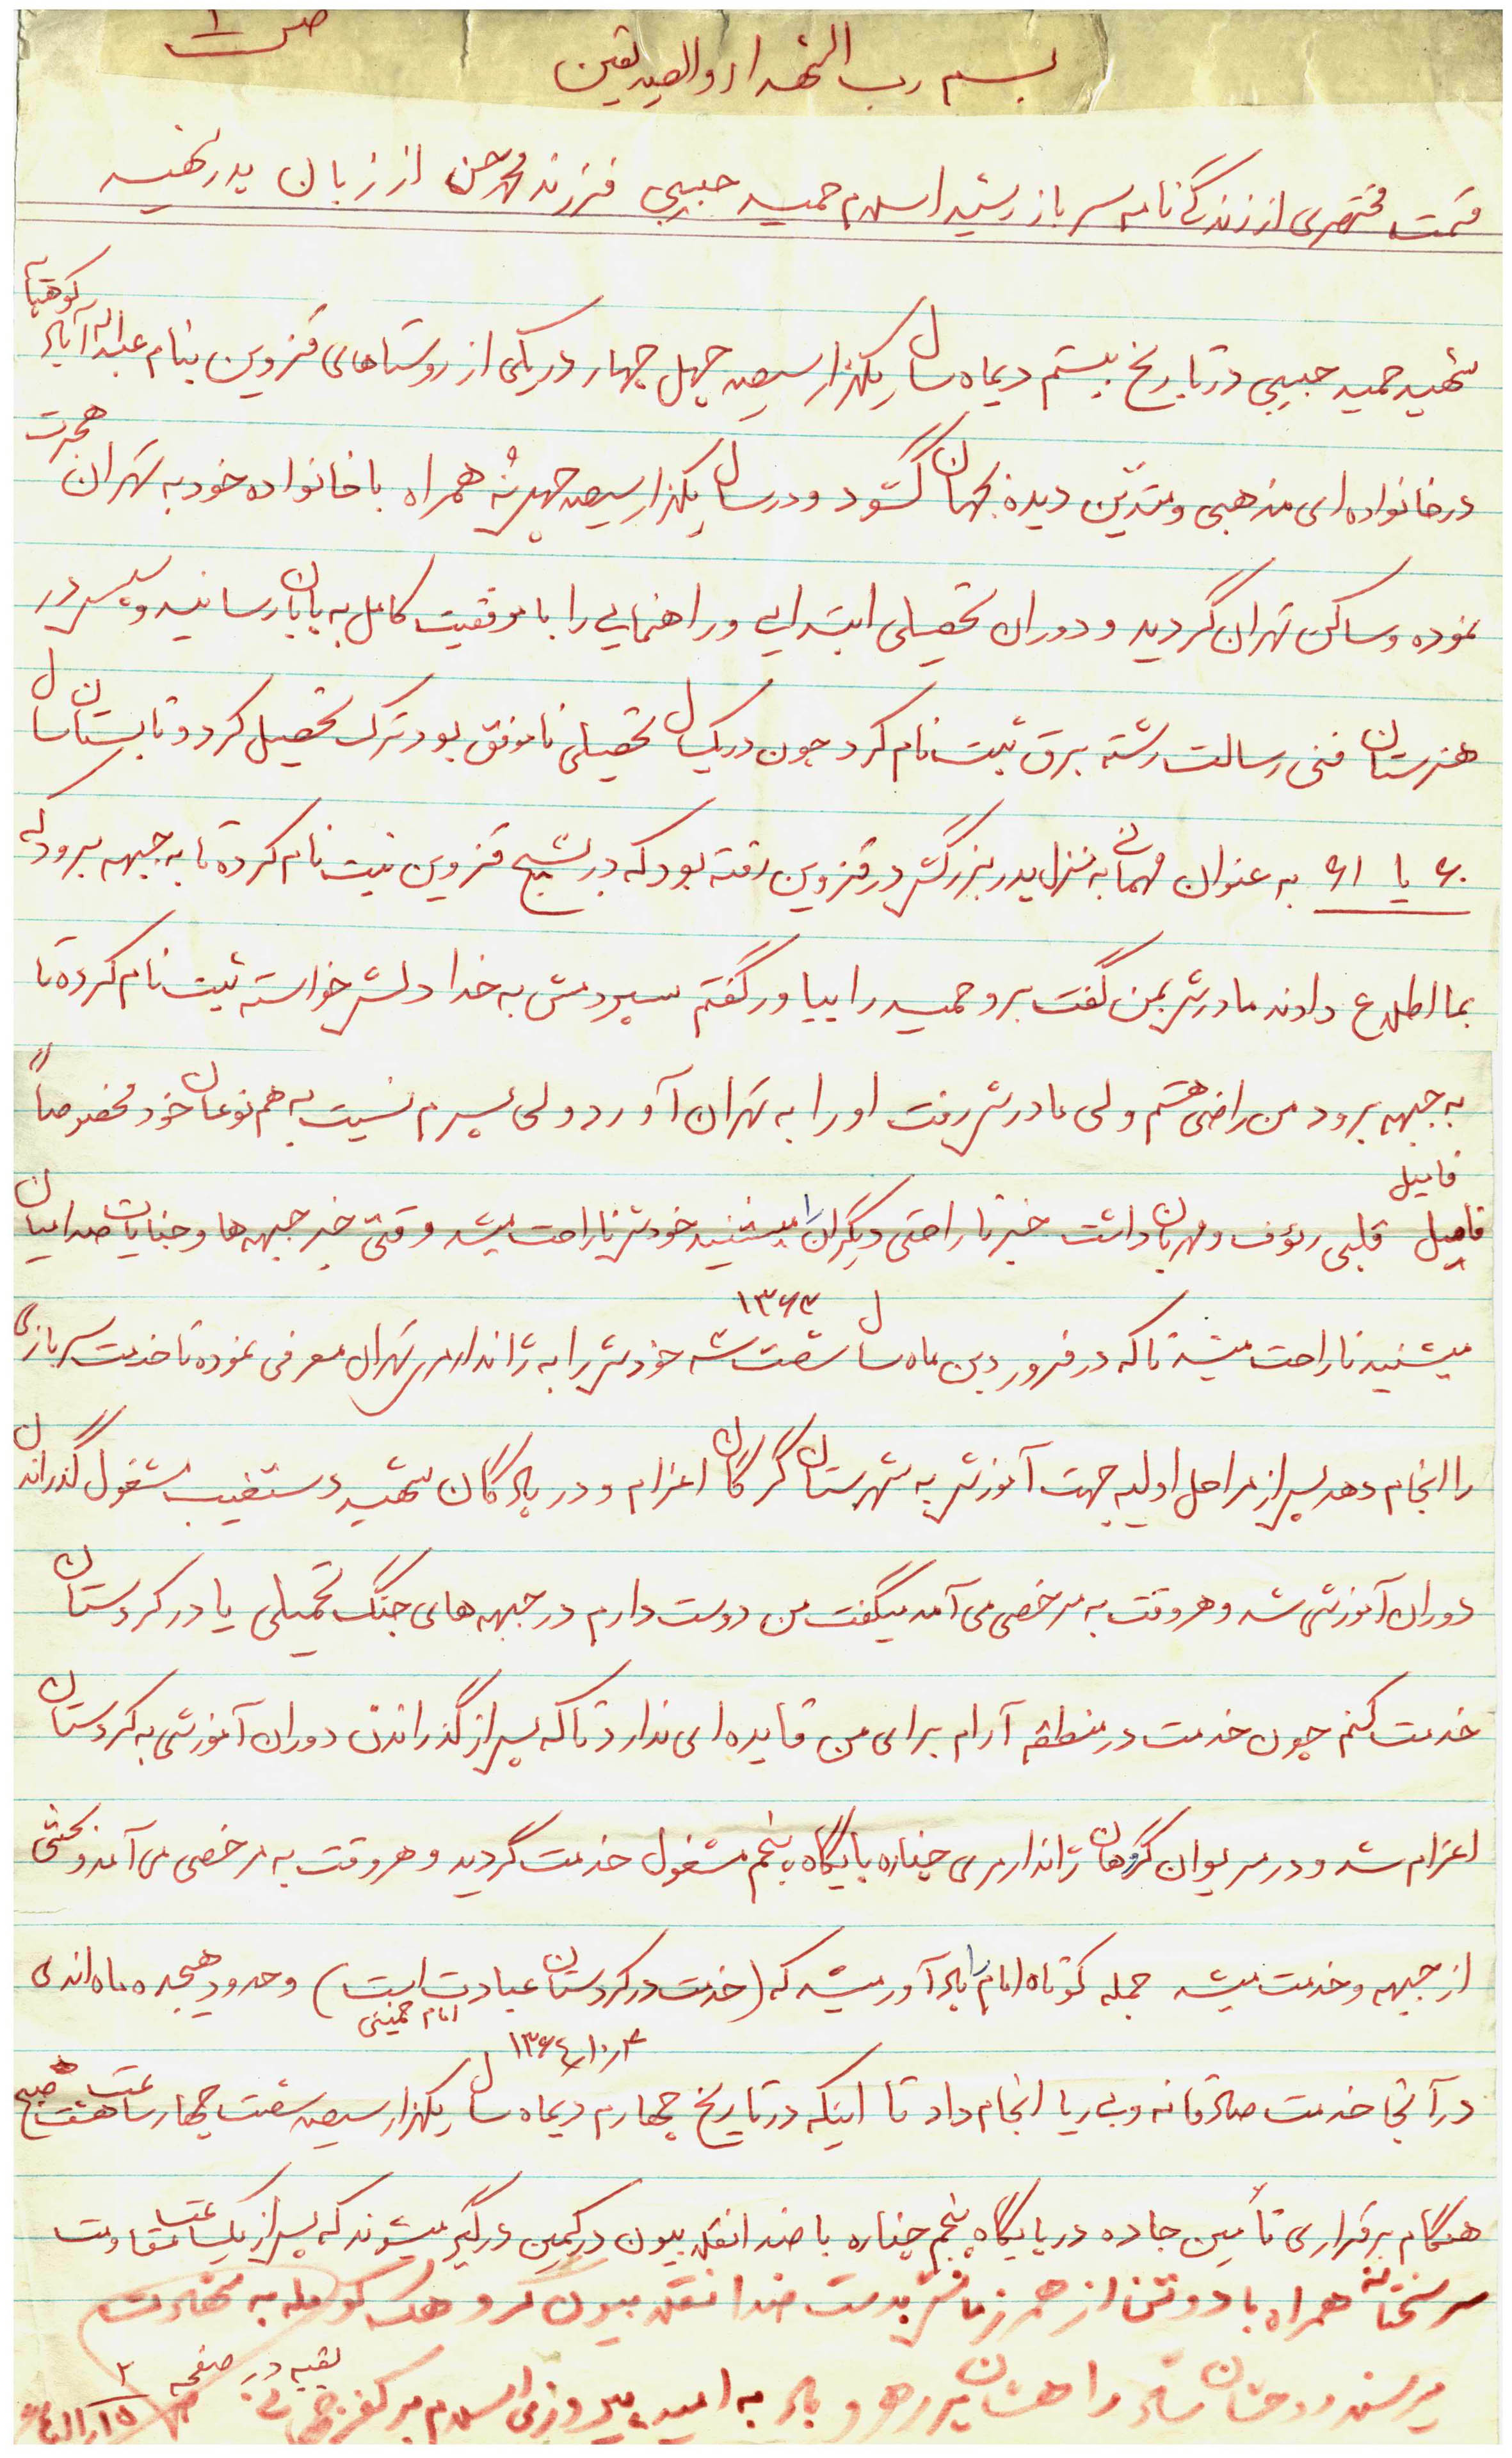 ص ۱
بسم رب الشهداء والصدیقین
قسمت مختصری از زندگی نامه سرباز رشید اسلام حمید حبیبی فرزند محمدحسن از زبان پدر شهید
شهید حمید حبیبی در تاریخ بیستم دیماه سال یکهزار سیصد چهل چهار در یکی از روستاهای قزوین بنام عبداله آباد کوهپایه
در خانواده ای مذهبی و متدین دیده بجهان گشود و در سال یکهزار سیصد چهل شش همراه با خانواده خود به تهران هجرت
نموده و ساکن تهران گردید و دوران تحصیلی ابتدایی و راهنمایی را با موفقیت کامل به پایان رسانید و سپس در
هنرستان فنی رسالت رشته برق ثبت نام کرد چون در یکسال تحصیلی ناموفق بود ترک تحصیل کرد و تابستان سال
۶۰ یا ۶۱ به عنوان مهمانی به منزل پدر بزرگش در قزوین رفته بود که در بسیج قزوین ثبت نام کرده تا به جبهه برود که
بما اطلاع دادند مادرش بمن گفت برو حمید را بیاور گفتم سپردمش به خدا دلش خواسته ثبت نام کرده تا
به جبهه برود من راضی هستم ولی مادرش رفت او را به تهران آورد ولی پسرم نسبت به هم نوعان خود مخصوصاً
فامیل
فامیل قلبی رئوف و مهربان داشت خبر ناراحتی دیگران را میشنید خودش ناراحت میشد وقتی خبر جبهه ها و جنایات صدامیان
میشنید ناراحت میشد تا که در فروردین ماه سال شصت سه ۱۳۶۳ خودش را به ژاندارمری تهران معرفی نموده تا خدمت سربازی
را انجام دهد پس از مراحل اولیه جهت آموزش به شهرستان گرگان اعزام و در پادگان شهید دستغیب مشغول گذراندن
دوران آموزشی شد و هر وقت به مرخصی می آمد میگفت من دوست دارم در جبهه های جنگ تحمیلی یا در کردستان
خدمت کنم چون خدمت در منطقه آرام برای من فایده ای ندارد تا که پس از گذراندن دوران آموزشی به کردستان
اعزام شد و در مریوان گروهان ژاندارمری چناره پایگاه پنجم مشغول خدمت گردید و هر وقت به مرخصی می آمد و بحثی
از جبهه و خدمت میشد جمله کوتاه امام را یادآور میشد که (خدمت در کردستان عبادت است) و حدود هیجده ماه اندی
امام خمینی
۱۳۶۴ر۱۰ر۴
در آنجا خدمت صادقانه و بی ریا انجام داد تا اینکه در تاریخ چهارم دیماه سال یکهزار سیصد شصت چهار ساعت هشت صبح
هنگام برقراری تأمین جاده در پایگاه پنجم چناره با ضد انقلابیون در کمین درگیر میشوند که پس از یکساعت مقاومت
سرسختانه همراه با دو تن از همرزمانش بدست ضد انقلابیون گروهک کومله به شهادت
میرسند روحشان شاد راهشان پر رهرو باد به امید پیروزی اسلام بر کفر جهانی
بقیه در صفحه ۲